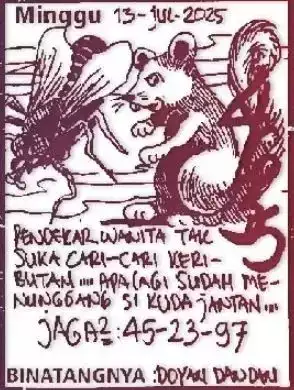 Minggu 13-JUL-2025
4
3
PENDEKAR WANITA TAK
SUKA CARI-CARI KERI-
BUTAN .... APALAGI SUDAH ME-
NUNGGANG SI KUDA JANTAN ...
JAGA2 : 45-23-97
BINATANGNYA : DOYAN DANDAN